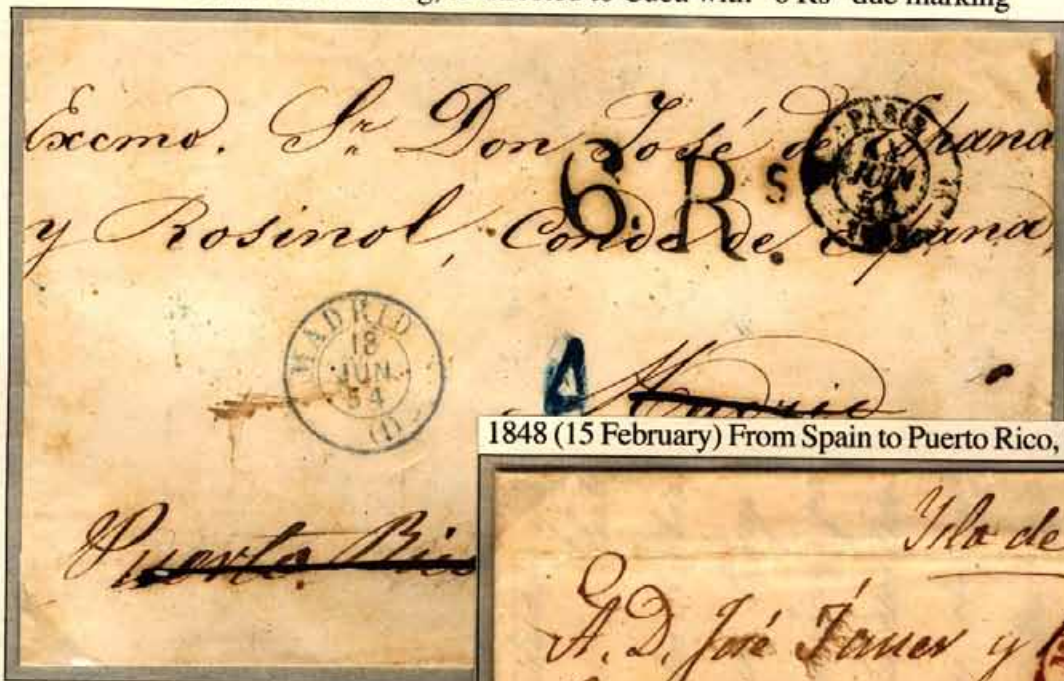 to Cuba with "6 Rs" due marking
Excmo. Sr Don José de España
y Rosinol, Conde de España
6. Rs
PARIS
JUIN
MADRID
18
JUN.
54
(1)
4
Madrid
Puerto Rico
1848 (15 February) From Spain to Puerto Rico,
Isla de
A. D. José Ja y